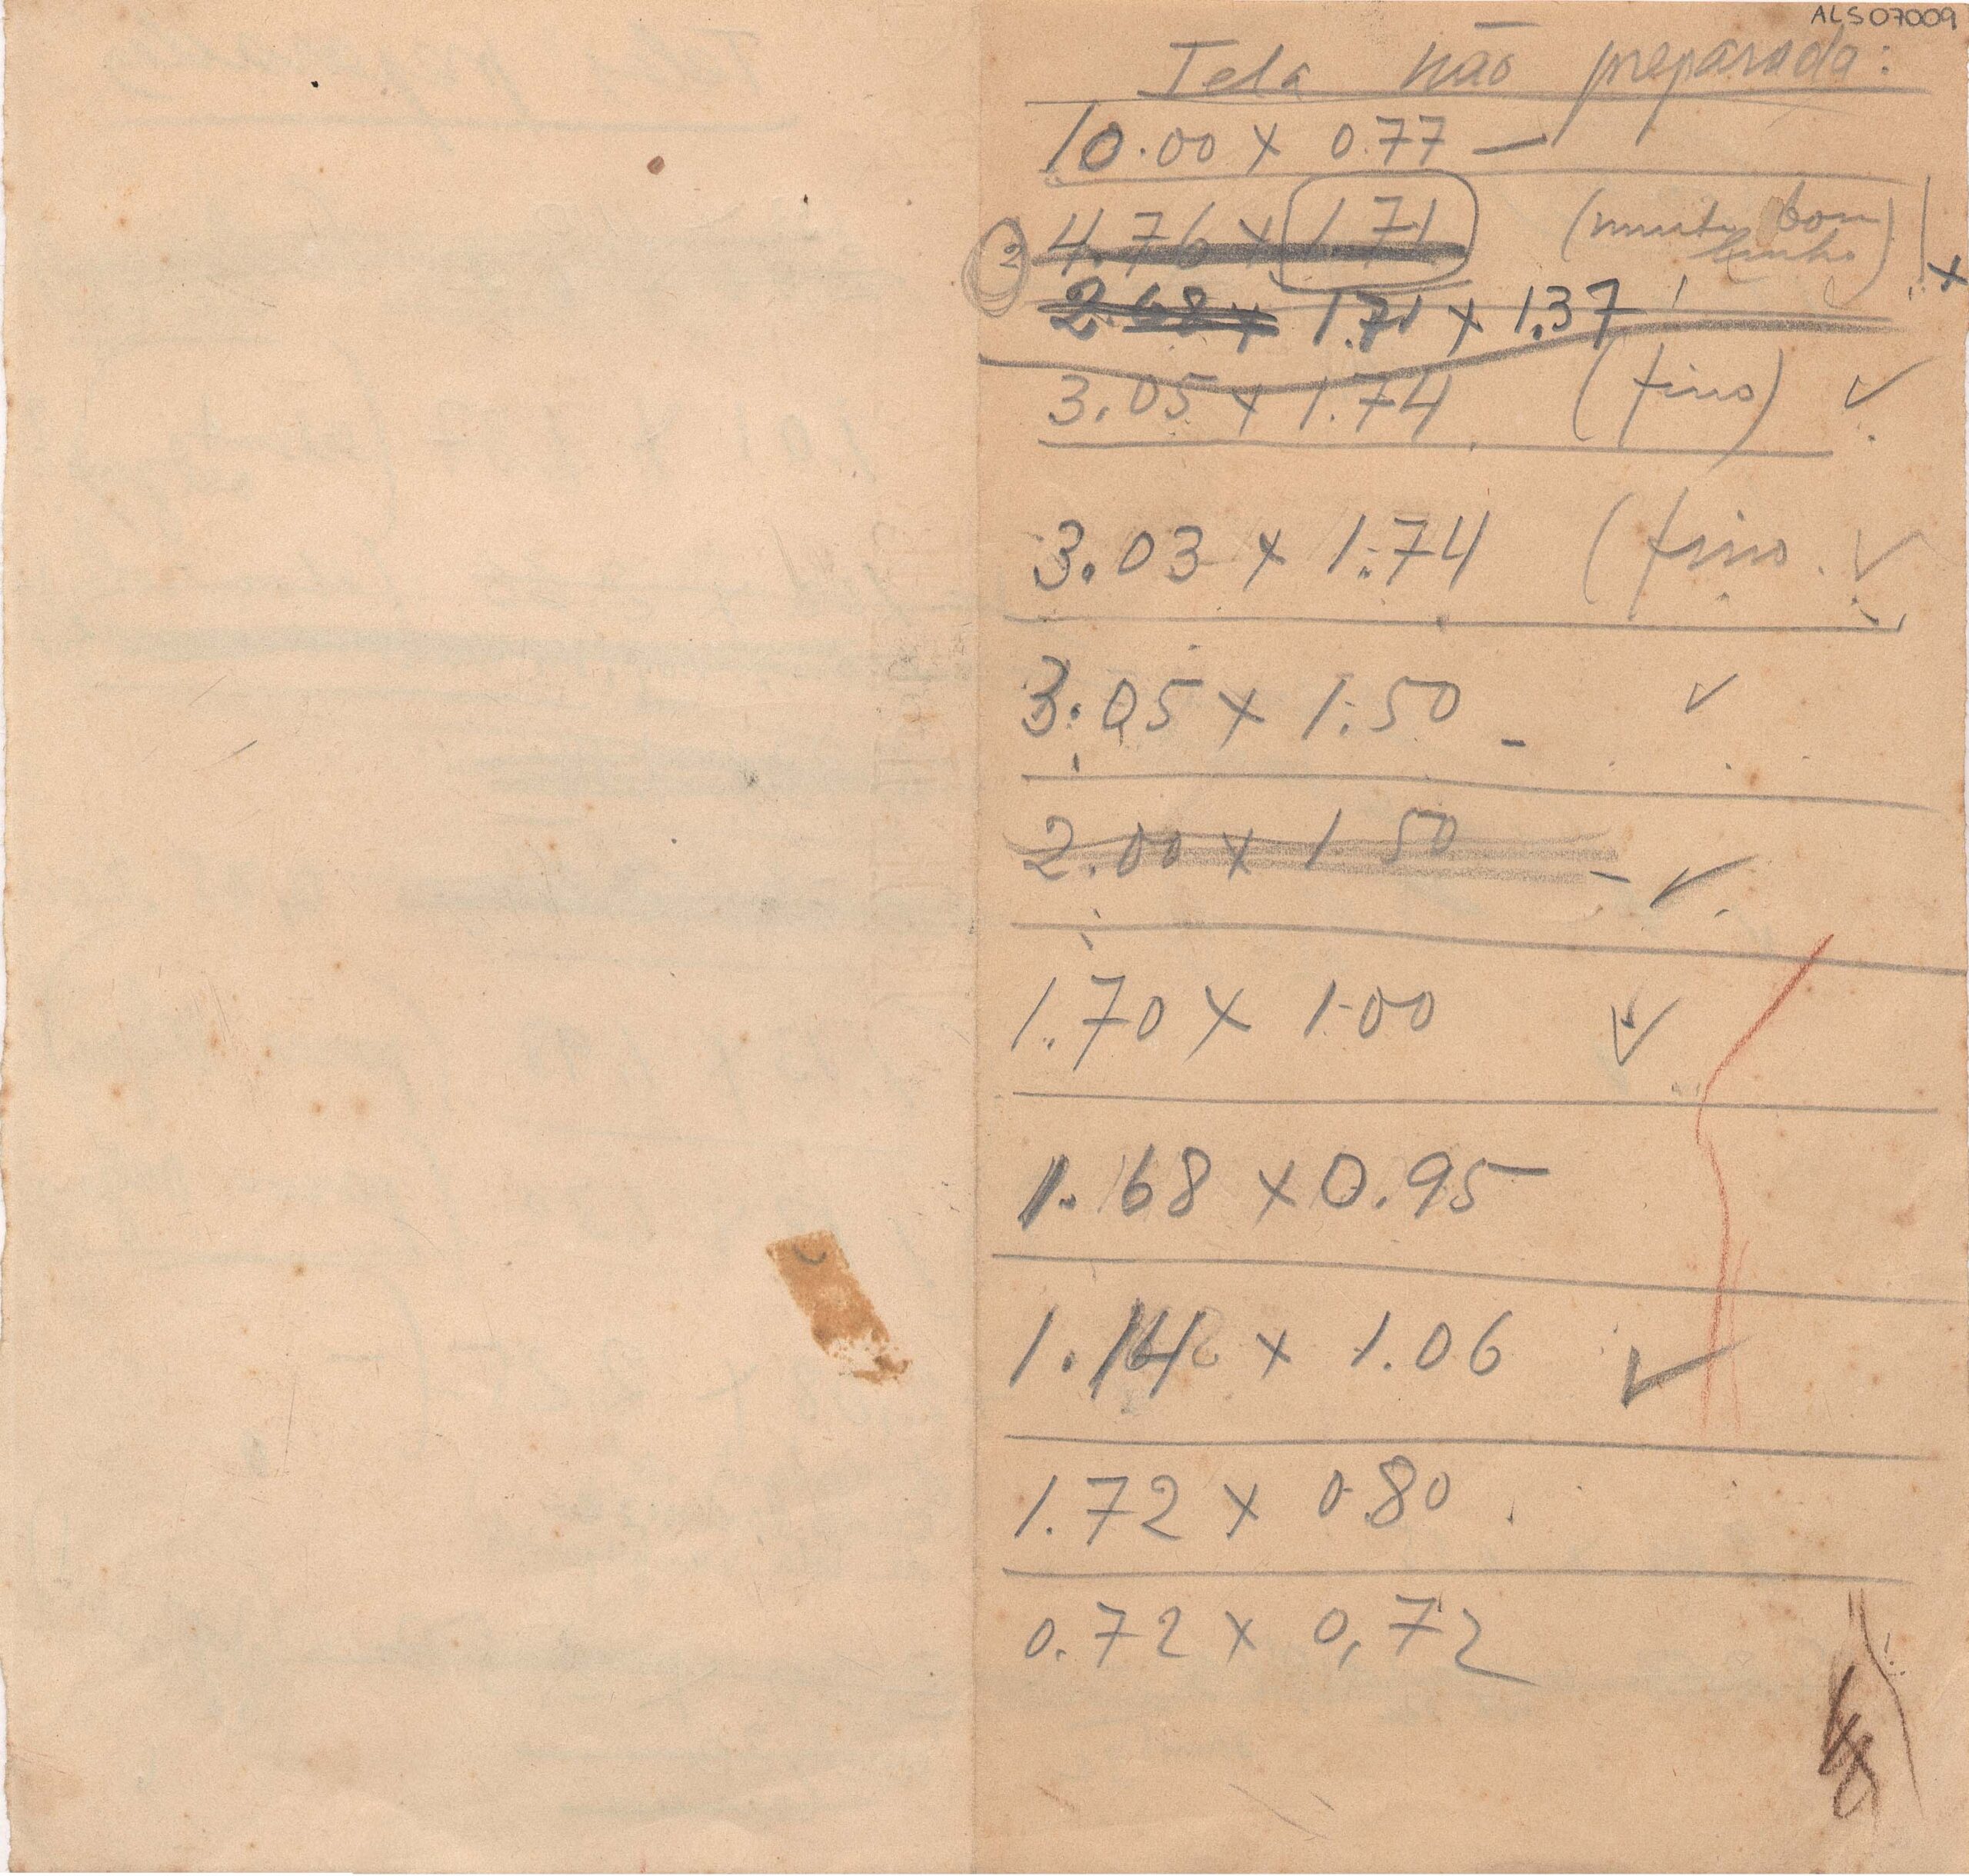 ALS07009
Tela não preparada:
10.00 x 0.77 —
2 4.76 x 1.71 (muito bom
linho)
x
2.68 x 1.71 x 1.37
3.05 x 1.74 (fino) ✓
3.03 x 1.74 (fino. ✓
3.05 x 1.50 - ✓
2.00 x 1.50 - ✓
1.70 x 1.00 ✓
1.68 x 0.95
1.14 x 1.06 ✓
1.72 x 0.80
0.72 x 0,72